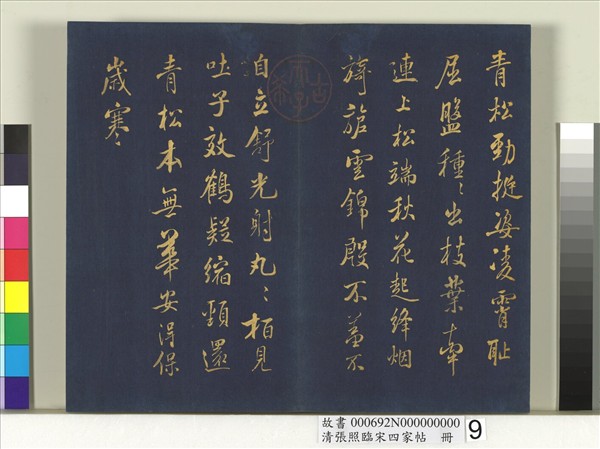 青松勁挺姿凌霄恥
屈盤種〻出枝葉牽
連上松端秋花起絳烟
旖旎雲錦殷不羞不
自立舒光射丸〻柏見
吐子效鶴疑縮頸還
青松本無華安得保
歲寒〻
古希天子
故書 000692N000000000
清張照臨宋四家帖 冊
9